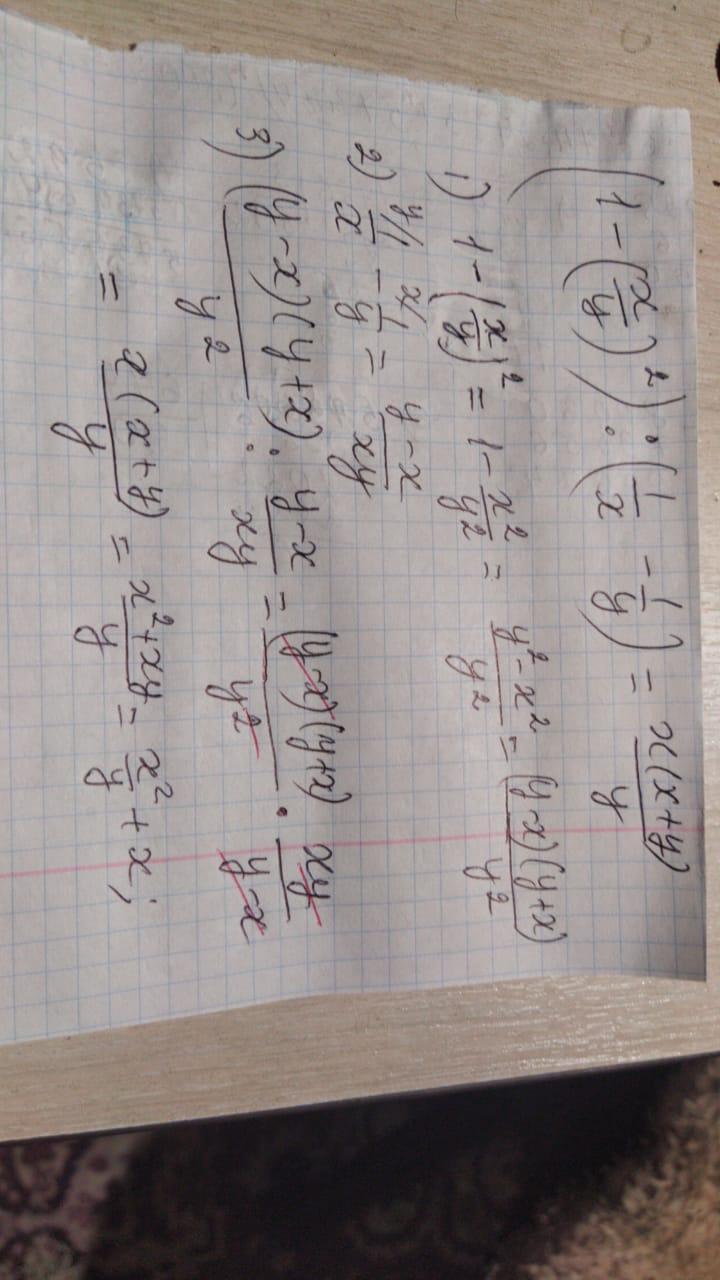 (1 - (x/y)²) : (1/x - 1/y) = x(x+y)/y
1) 1 - (x/y)² = 1 - x²/y² = (y² - x²)/y² = (y-x)(y+x)/y²
2) y/1/x - x/1/y = (y-x)/xy
3) (y-x)(y+x)/y² : (y-x)/xy = (y-x)(y+x)/y² · xy/(y-x)
= x(x+y)/y = (x²+xy)/y = x²/y + x;